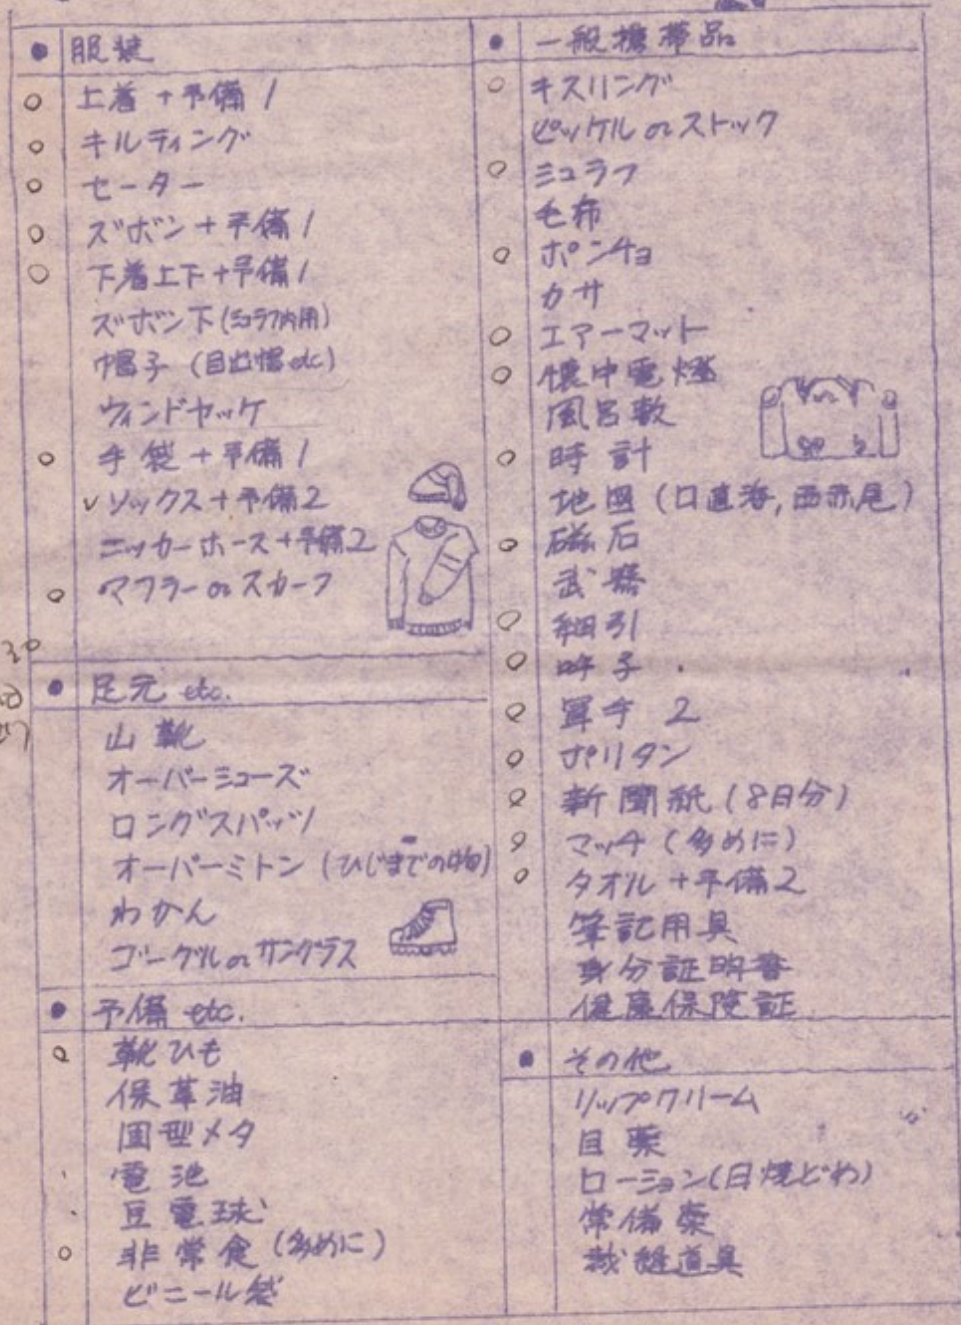 ● 服装
○ 上着+予備1
○ キルティング
○ セーター
○ ズボン+予備1
○ 下着上下+予備1
ズボン下(シュラフ内用)
帽子(目出帽etc)
ウィンドヤッケ
○ 手袋+予備1
✓ソックス+予備2
ニッカーホース+予備2
○ マフラーorスカーフ
● 足元 etc.
山靴
オーバーシューズ
ロングスパッツ
オーバーミトン(ひじまでの物)
わかん
ゴーグルorサングラス
● 予備 etc.
○ 靴ひも
保革油
固型メタ
電池
豆電球
○ 非常食(多めに)
ビニール袋
● 一般携帯品
○ キスリング
ピッケルorストック
○ シュラフ
毛布
○ ポンチョ
カサ
○ エアーマット
○ 懐中電燈
風呂敷
○ 時計
地図(口直海,西赤尾)
○ 磁石
武器
○ 細引
○ 呼子
○ 軍手 2
○ ポリタン
○ 新聞紙(8日分)
○ マッチ(多めに)
○ タオル+予備2
筆記用具
身分証明書
健康保険証
● その他
リップクリーム
目薬
ローション(日焼どめ)
常備薬
裁縫道具
30